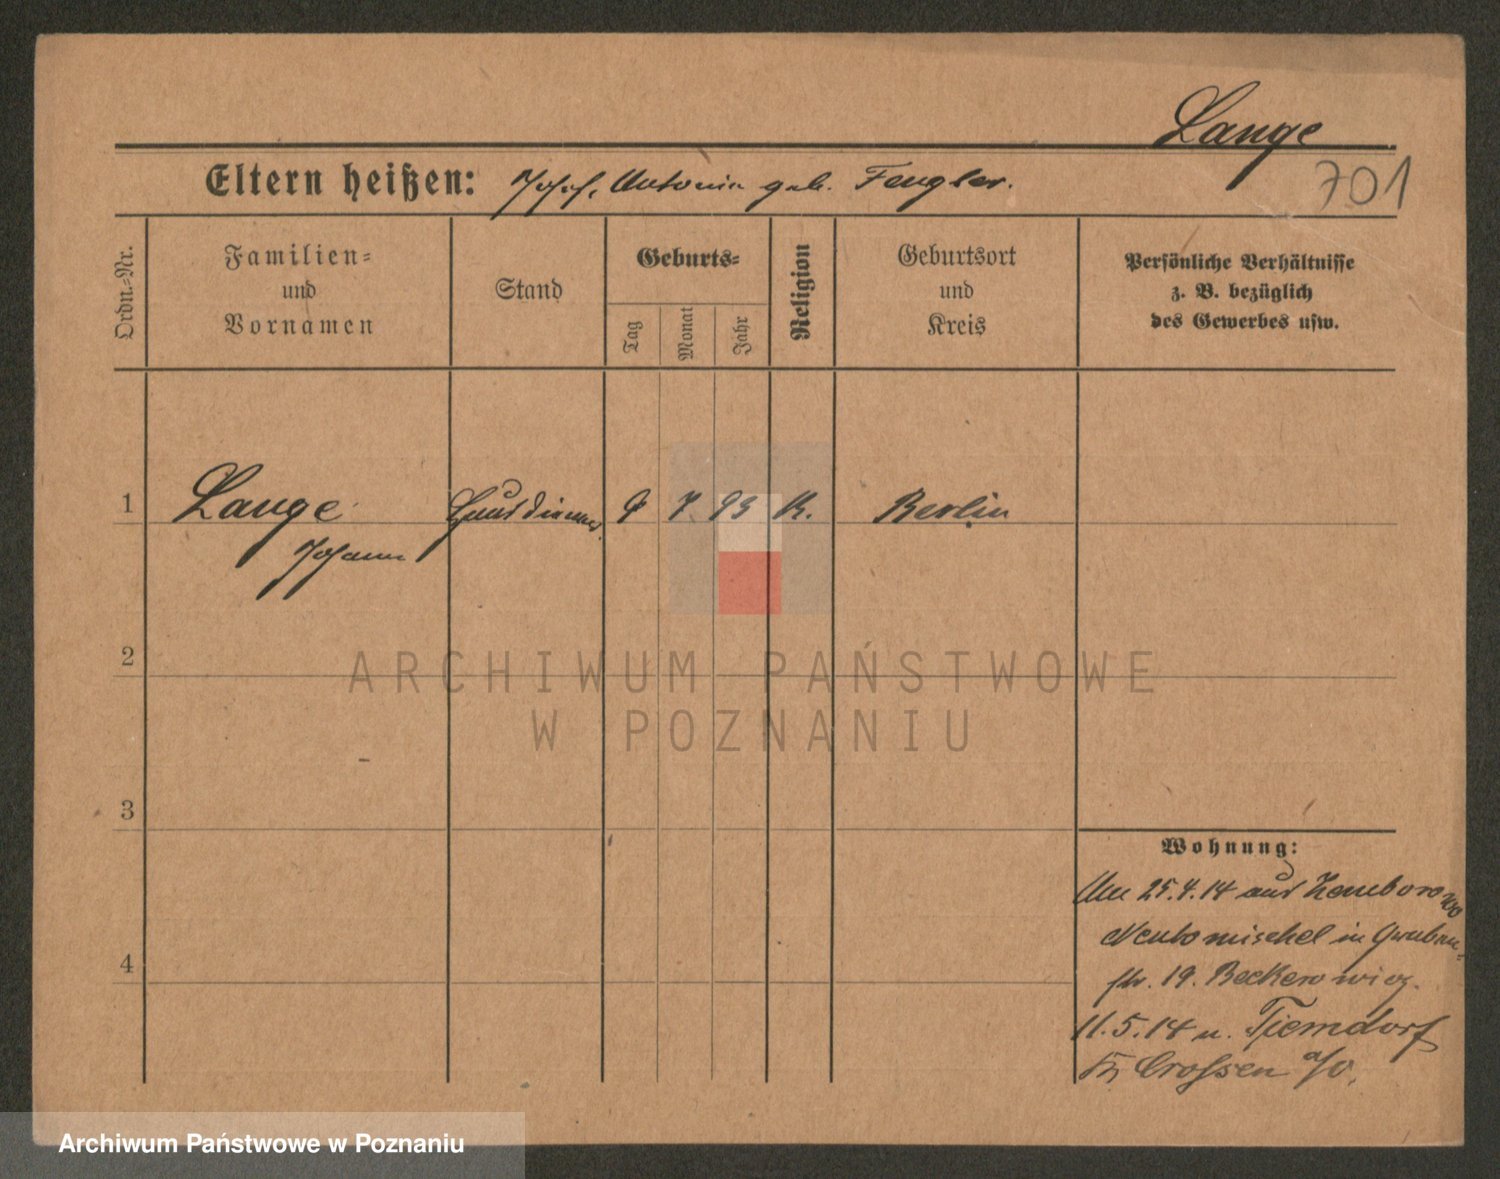 Lange
701
Eltern heißen: Josef, Antonie geb. Fengler.
Ordn.-Nr.
Familien-
und
Vornamen
Stand
Geburts-
Tag
Monat
Jahr
Religion
Geburtsort
und
Kreis
Persönliche Verhältnisse
z. B. bezüglich
des Gewerbes usw.
1 Lange Hausdiener 9 7 93 K. Berlin
Johann
2
3
4
Wohnung:
Am 25.4.14 aus
Neutomischel in Graben-
str. 19.
11.5.14 n. Tiemdorf
Kr. Crossen a/O.
ARCHIWUM PAŃSTWOWE
W POZNANIU
Archiwum Państwowe w Poznaniu